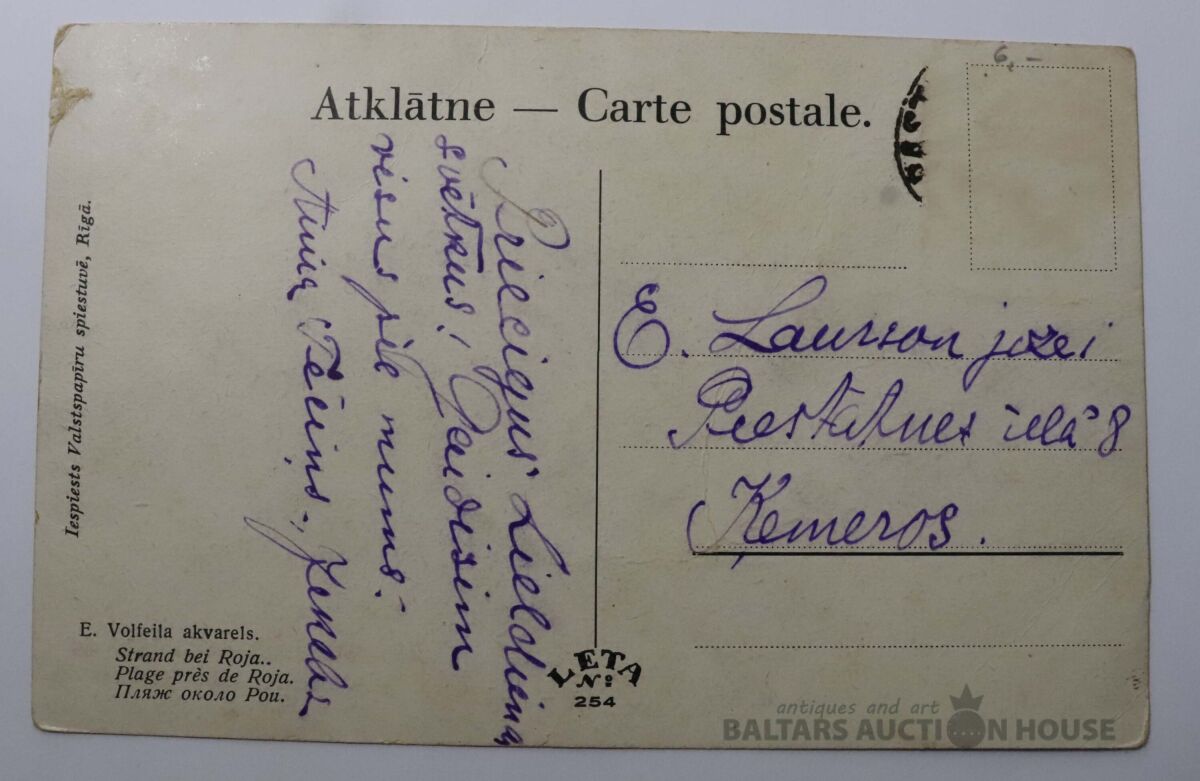 6,-
Atklātne — Carte postale.
Priecigus Lieldienu
svētkus! Gaidisim
visus pie mums.
Anna Tēiņš
E. Laurson
ielā 8
Ķemeros.
Iespiests Valstspapīru spiestuvē, Rīgā.
E. Volfeila akvarels.
Strand bei Roja..
Plage près de Roja.
Пляж около Рои.
LETA
Nº
254
antiques and art
BALTARS AUCTION HOUSE